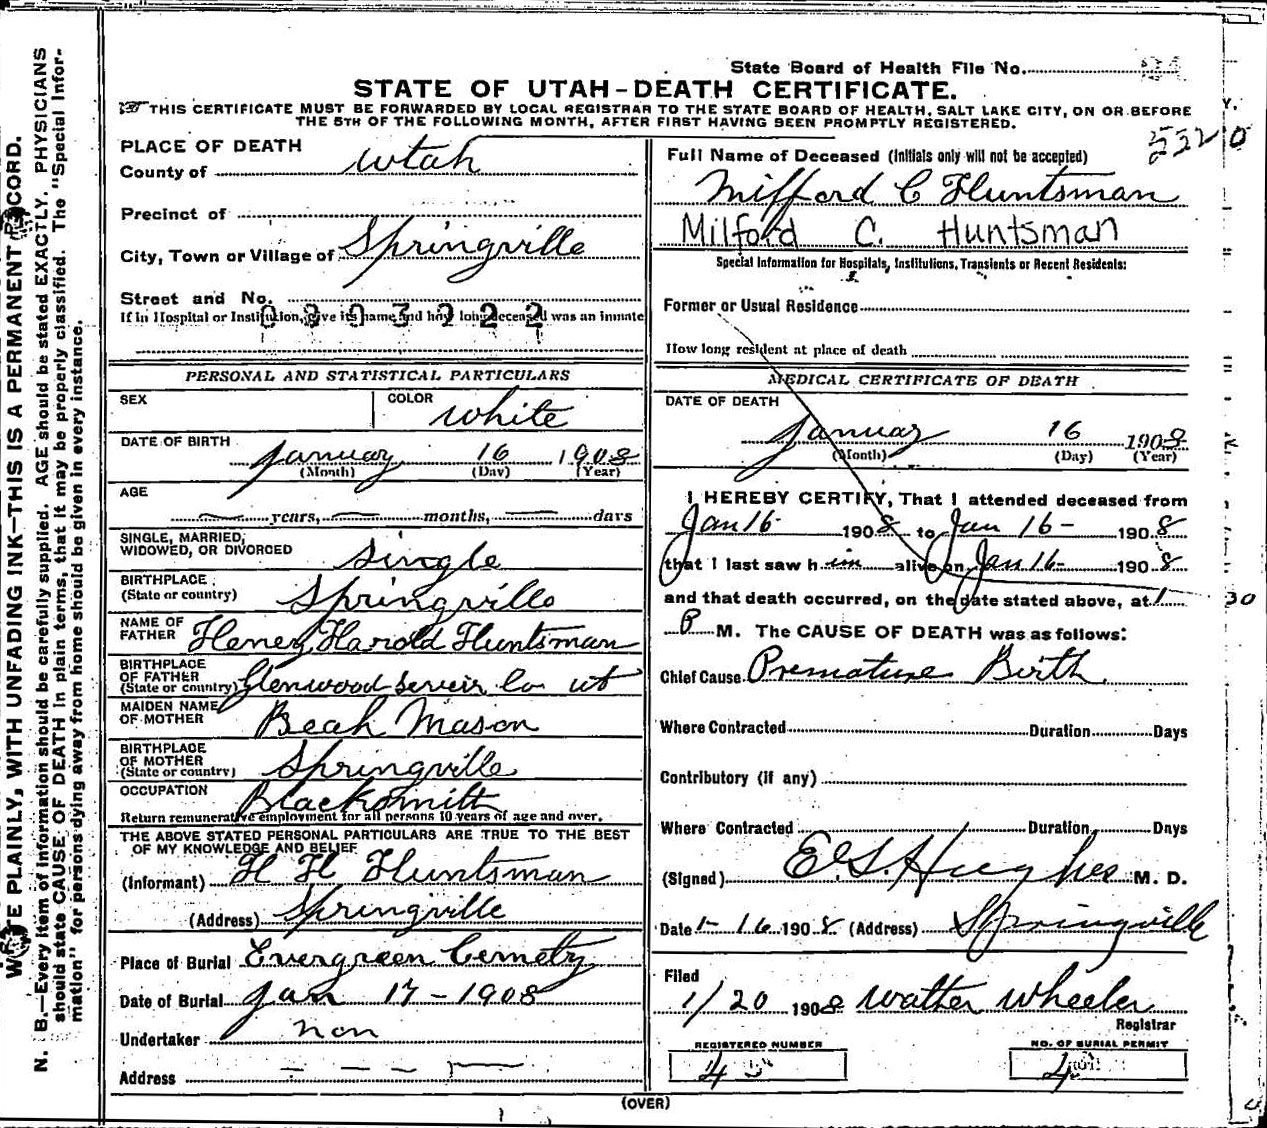 State Board of Health File No.
STATE OF UTAH–DEATH CERTIFICATE.
THIS CERTIFICATE MUST BE FORWARDED BY LOCAL REGISTRAR TO THE STATE BOARD OF HEALTH, SALT LAKE CITY, ON OR BEFORE
THE 5TH OF THE FOLLOWING MONTH, AFTER FIRST HAVING BEEN PROMPTLY REGISTERED.
5320
PLACE OF DEATH
County of Utah
Precinct of
City, Town or Village of Springville
Street and No.
If in Hospital or Institution, give its name and how long deceased was an inmate
PERSONAL AND STATISTICAL PARTICULARS
SEX COLOR white
DATE OF BIRTH
January 16 1908
(Month) (Day) (Year)
AGE
years, months, days
SINGLE, MARRIED,
WIDOWED, OR DIVORCED single
BIRTHPLACE
(State or country) Springville
NAME OF
FATHER Heney Harold Huntsman
BIRTHPLACE
OF FATHER
(State or country) Glenwood Seveir Co ut
MAIDEN NAME
OF MOTHER Beah Mason
BIRTHPLACE
OF MOTHER
(State or country) Springville
OCCUPATION Blacksmith
Return remunerative employment for all persons 10 years of age and over.
THE ABOVE STATED PERSONAL PARTICULARS ARE TRUE TO THE BEST
OF MY KNOWLEDGE AND BELIEF
(Informant) H H Huntsman
(Address) Springville
Place of Burial Evergreen Cemety
Date of Burial Jan 17 - 1908
Undertaker non
Address
Full Name of Deceased (Initials only will not be accepted)
Milford C Huntsman
Milford C. Huntsman
Special Information for Hospitals, Institutions, Transients or Recent Residents:
Former or Usual Residence
How long resident at place of death
MEDICAL CERTIFICATE OF DEATH
DATE OF DEATH
January 16 1908
(Month) (Day) (Year)
I HEREBY CERTIFY, That I attended deceased from
Jan 16 1908 to Jan 16 - 1908
that I last saw him alive on Jan 16 - 1908
and that death occurred, on the date stated above, at 1 30
P M. The CAUSE OF DEATH was as follows:
Chief Cause Premature Birth
Where Contracted Duration Days
Contributory (if any)
Where Contracted Duration Days
(Signed) E. S. Hughes M. D.
Date 1-16 1908 (Address) Springville
Filed
1/20 1908 Walther Wheeler
Registrar
REGISTERED NUMBER NO. OF BURIAL PERMIT
4 4
(OVER)
N. B.—Every item of information should be carefully supplied. AGE should be stated EXACTLY. PHYSICIANS
should state CAUSE OF DEATH in plain terms, that it may be properly classified. The "Special Infor-
mation" for persons dying away from home should be given in every instance.
PLAINLY, WITH UNFADING INK—THIS IS A PERMANENT